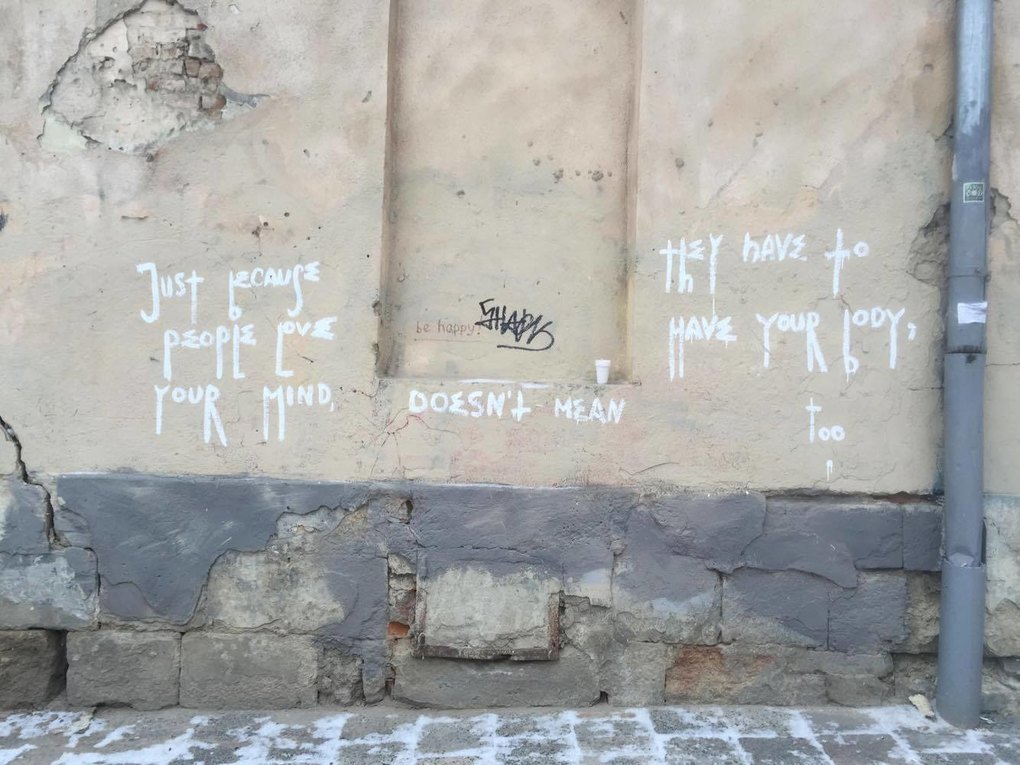 Just because
people love
your mind,
be happy!
DOESN't MEAN
they have to
have your body,
too.